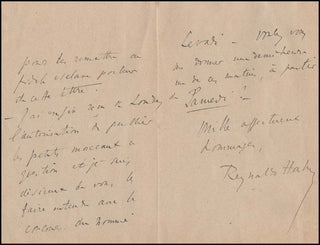 pour les remettre au
fidèle esclave porteur
de cette lettre.
- J'ai enfin reçu de Londres
l'autorisation de publier
les petits morceaux en
question et je suis
désireux de vous les
faire entendre avec le
concours du nommé
- Voulez vous
me donner une demi-heure
un de ces matins, à partir
de Samedi ?
Mille affectueux
hommages,
Reynaldo Hahn